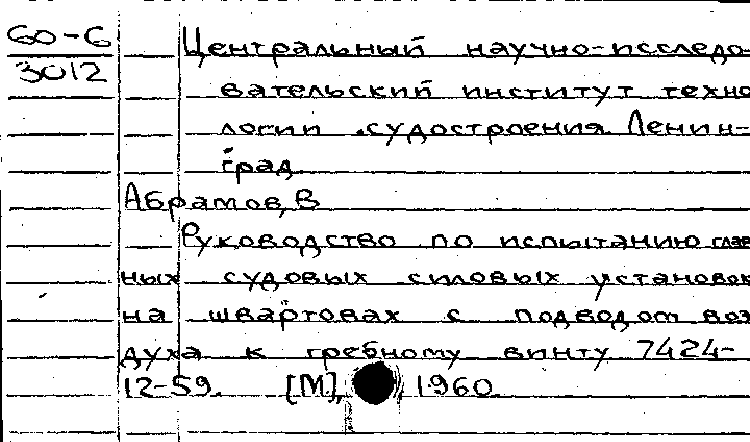 60-6
3012
Центральный научно-исследо
вательский институт техно
логии судостроения. Ленин-
град
Абрамов, В
Руководство по испытанию глав
ных судовых силовых установок
на швартовах с подводом воз
духа к гребному винту 7424-
12-59. [М], 1960.